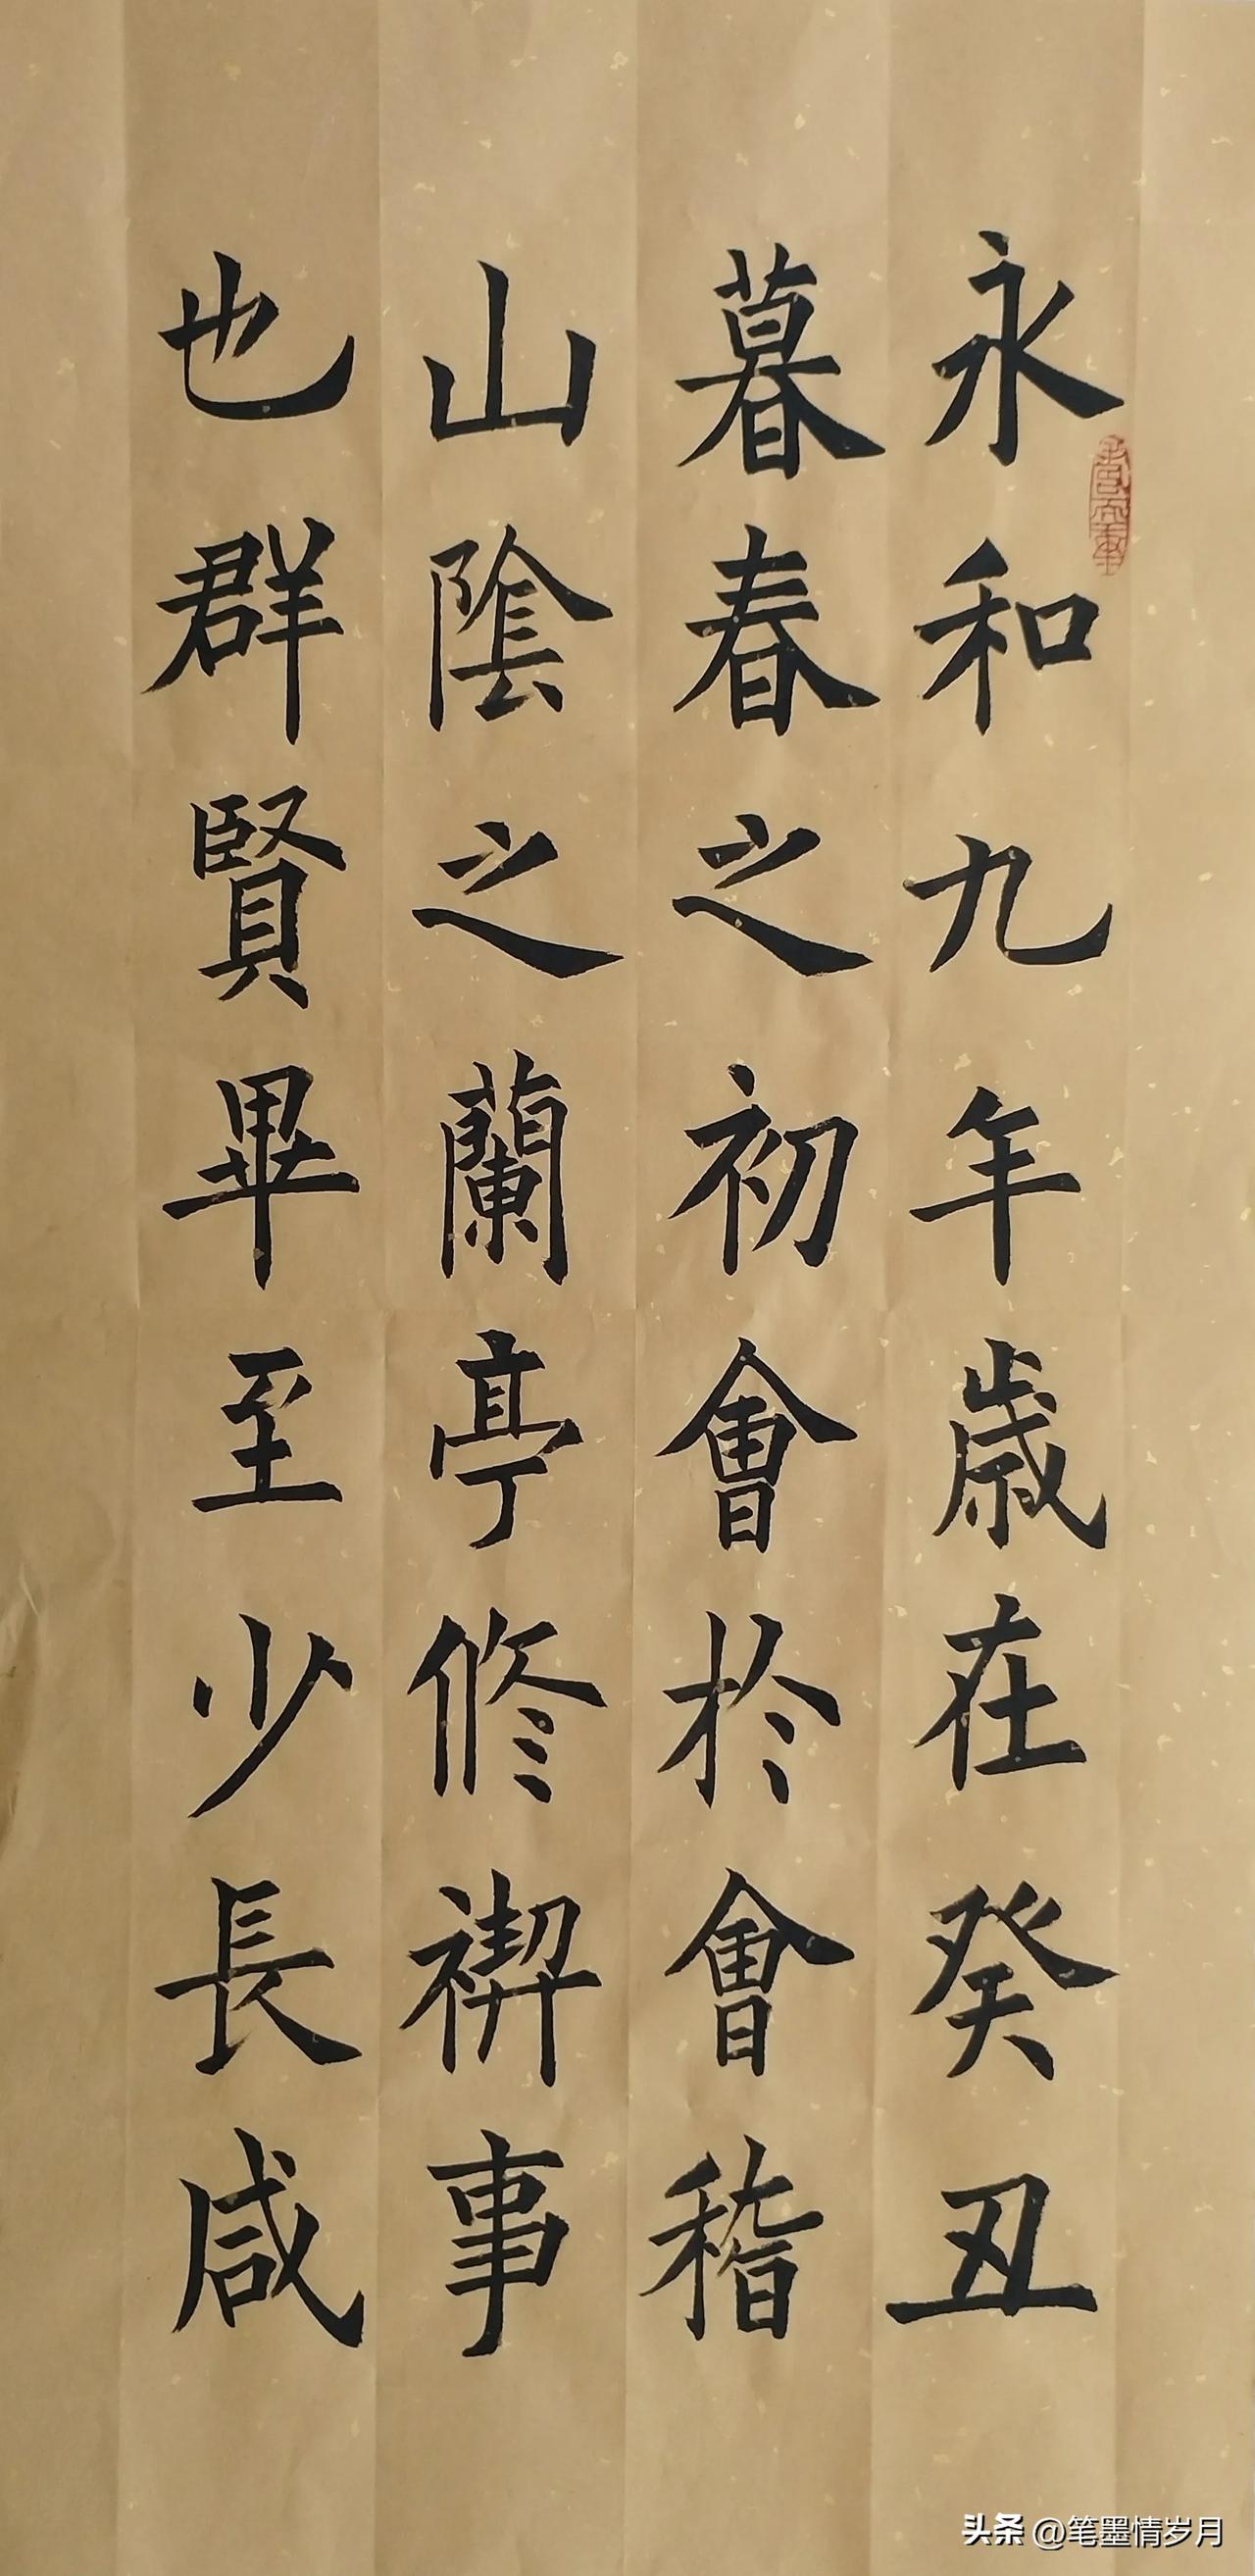 永和九年歲在癸丑
暮春之初會於會稽
山陰之蘭亭修禊事
也群賢畢至少長咸
头条 @笔墨情岁月